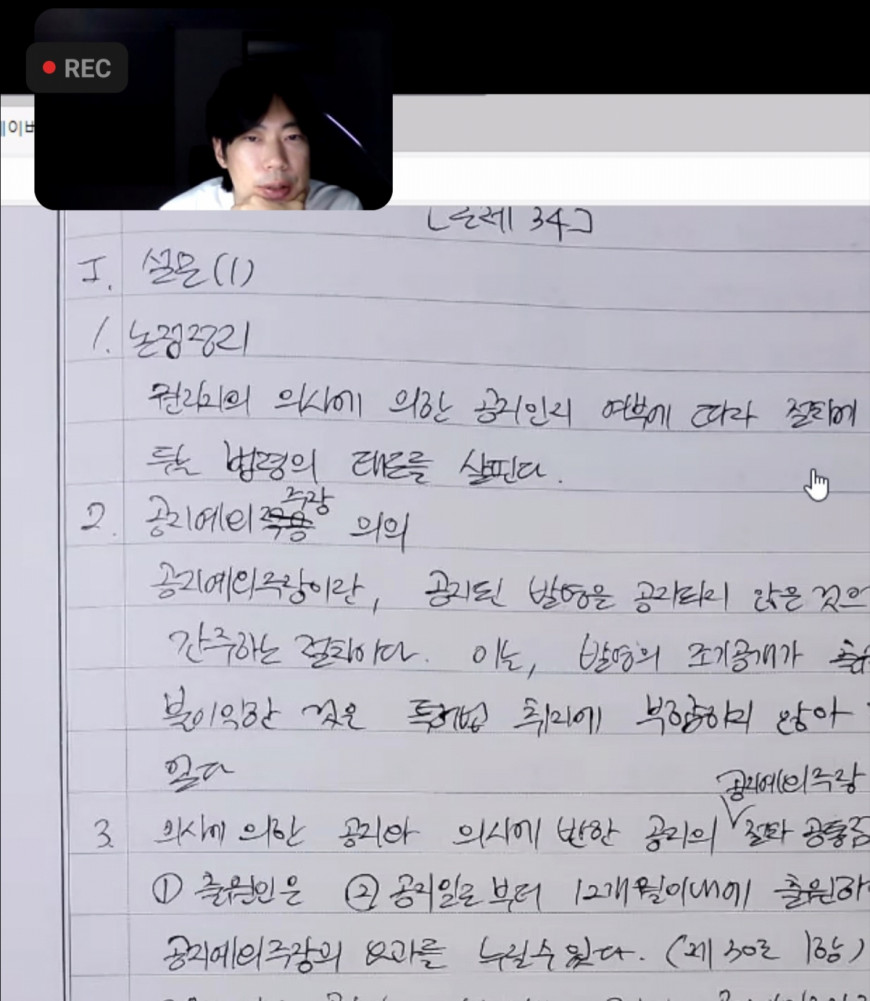 REC
[문제 34]
I. 설문(1)
1. 논점정리
권리자의 의사에 의한 공지인지 여부에 따라 절차에
두는 법령의 태도를 살핀다.
2. 공지예외 주장 의의
공지예외주장이란, 공지된 발명을 공지되지 않은 것으
간주하는 절차이다. 이는, 발명의 조기공개가
불이익한 것은 특허법 취지에 부합하지 않아
일다
공지예외주장
3. 의사에 의한 공지와 의사에 반한 공지의 절차 공통점
① 출원인은 ② 공지일로부터 12개월이내에 출원하
공지예외주장의 효과를 누릴수 있다. (제30조 1항)